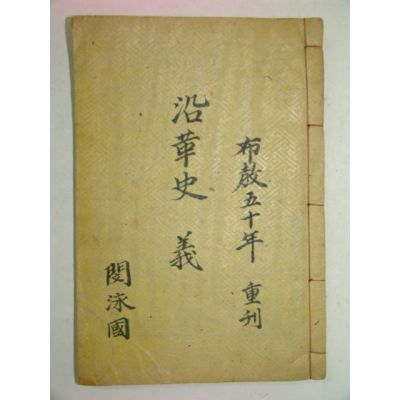 布敎五十年 重刊
沿革史 義
閔泳國